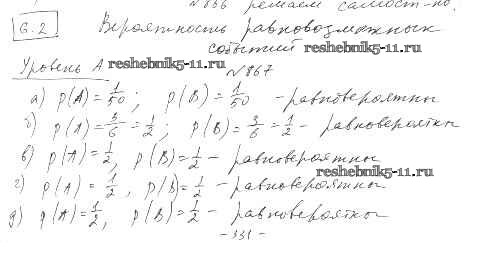 №866 решаем самост-но.
6.2 Вероятность равновозможных
событий reshebnik5-11.ru
Уровень А reshebnik5-11.ru
№867
а) p(A)=1/50; p(B)=1/50 - равновероятны
б) p(A)=3/6=1/2; p(B)=3/6=1/2 - равновероятны
в) p(A)=1/2, p(B)=1/2 - равновероятны
reshebnik5-11.ru
г) p(A)=1/2, p(B)=1/2 - равновероятны
д) p(A)=1/2, p(B)=1/2 - равновероятны
- 331 -